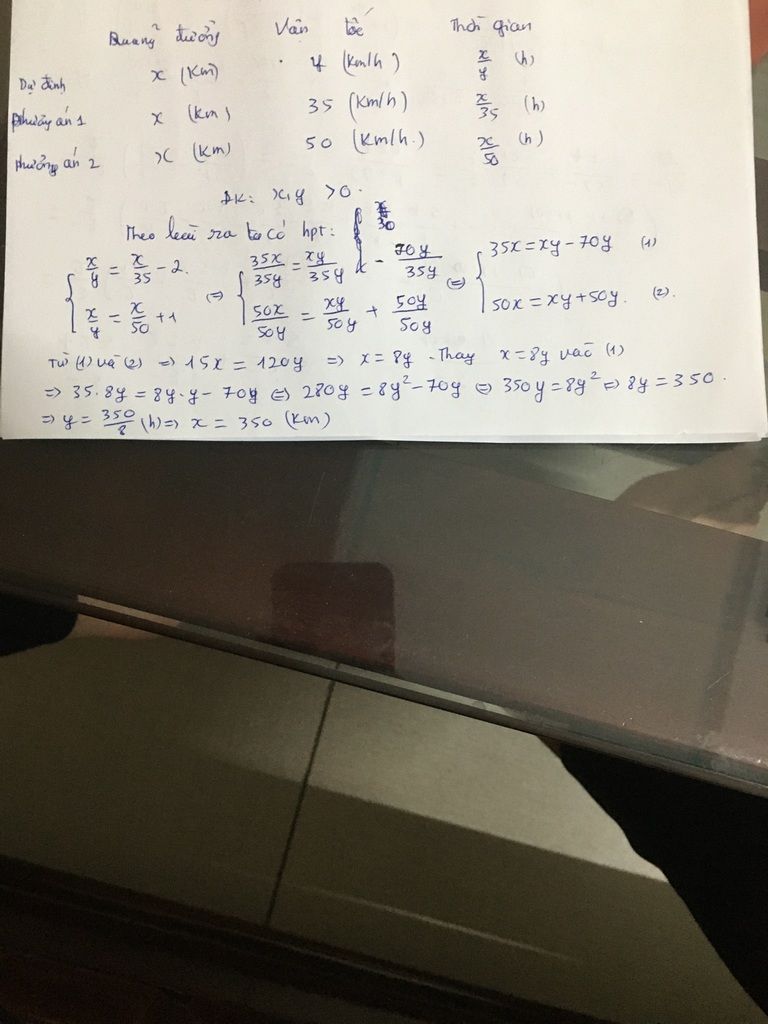 Quãng đường Vận tốc Thời gian
Dự định x (Km) y (Km/h) x/y (h)
Phương án 1 x (Km) 35 (Km/h) x/35 (h)
Phương án 2 x (Km) 50 (Km/h.) x/50 (h)
ĐK: x,y > 0.
Theo bài ra ta có hpt:
{ x/y = x/35 - 2. ⇔ { 35x/35y = xy/35y - 70y/35y ⇔ { 35x = xy - 70y (1)
x/y = x/50 + 1 50x/50y = xy/50y + 50y/50y 50x = xy + 50y. (2).
Từ (1) và (2) ⇒ 15x = 120y ⇒ x = 8y. Thay x = 8y vào (1)
⇒ 35.8y = 8y.y - 70y ⇔ 280y = 8y² - 70y ⇔ 350y = 8y² ⇔ 8y = 350.
⇒ y = 350/8 (h) ⇒ x = 350 (Km)